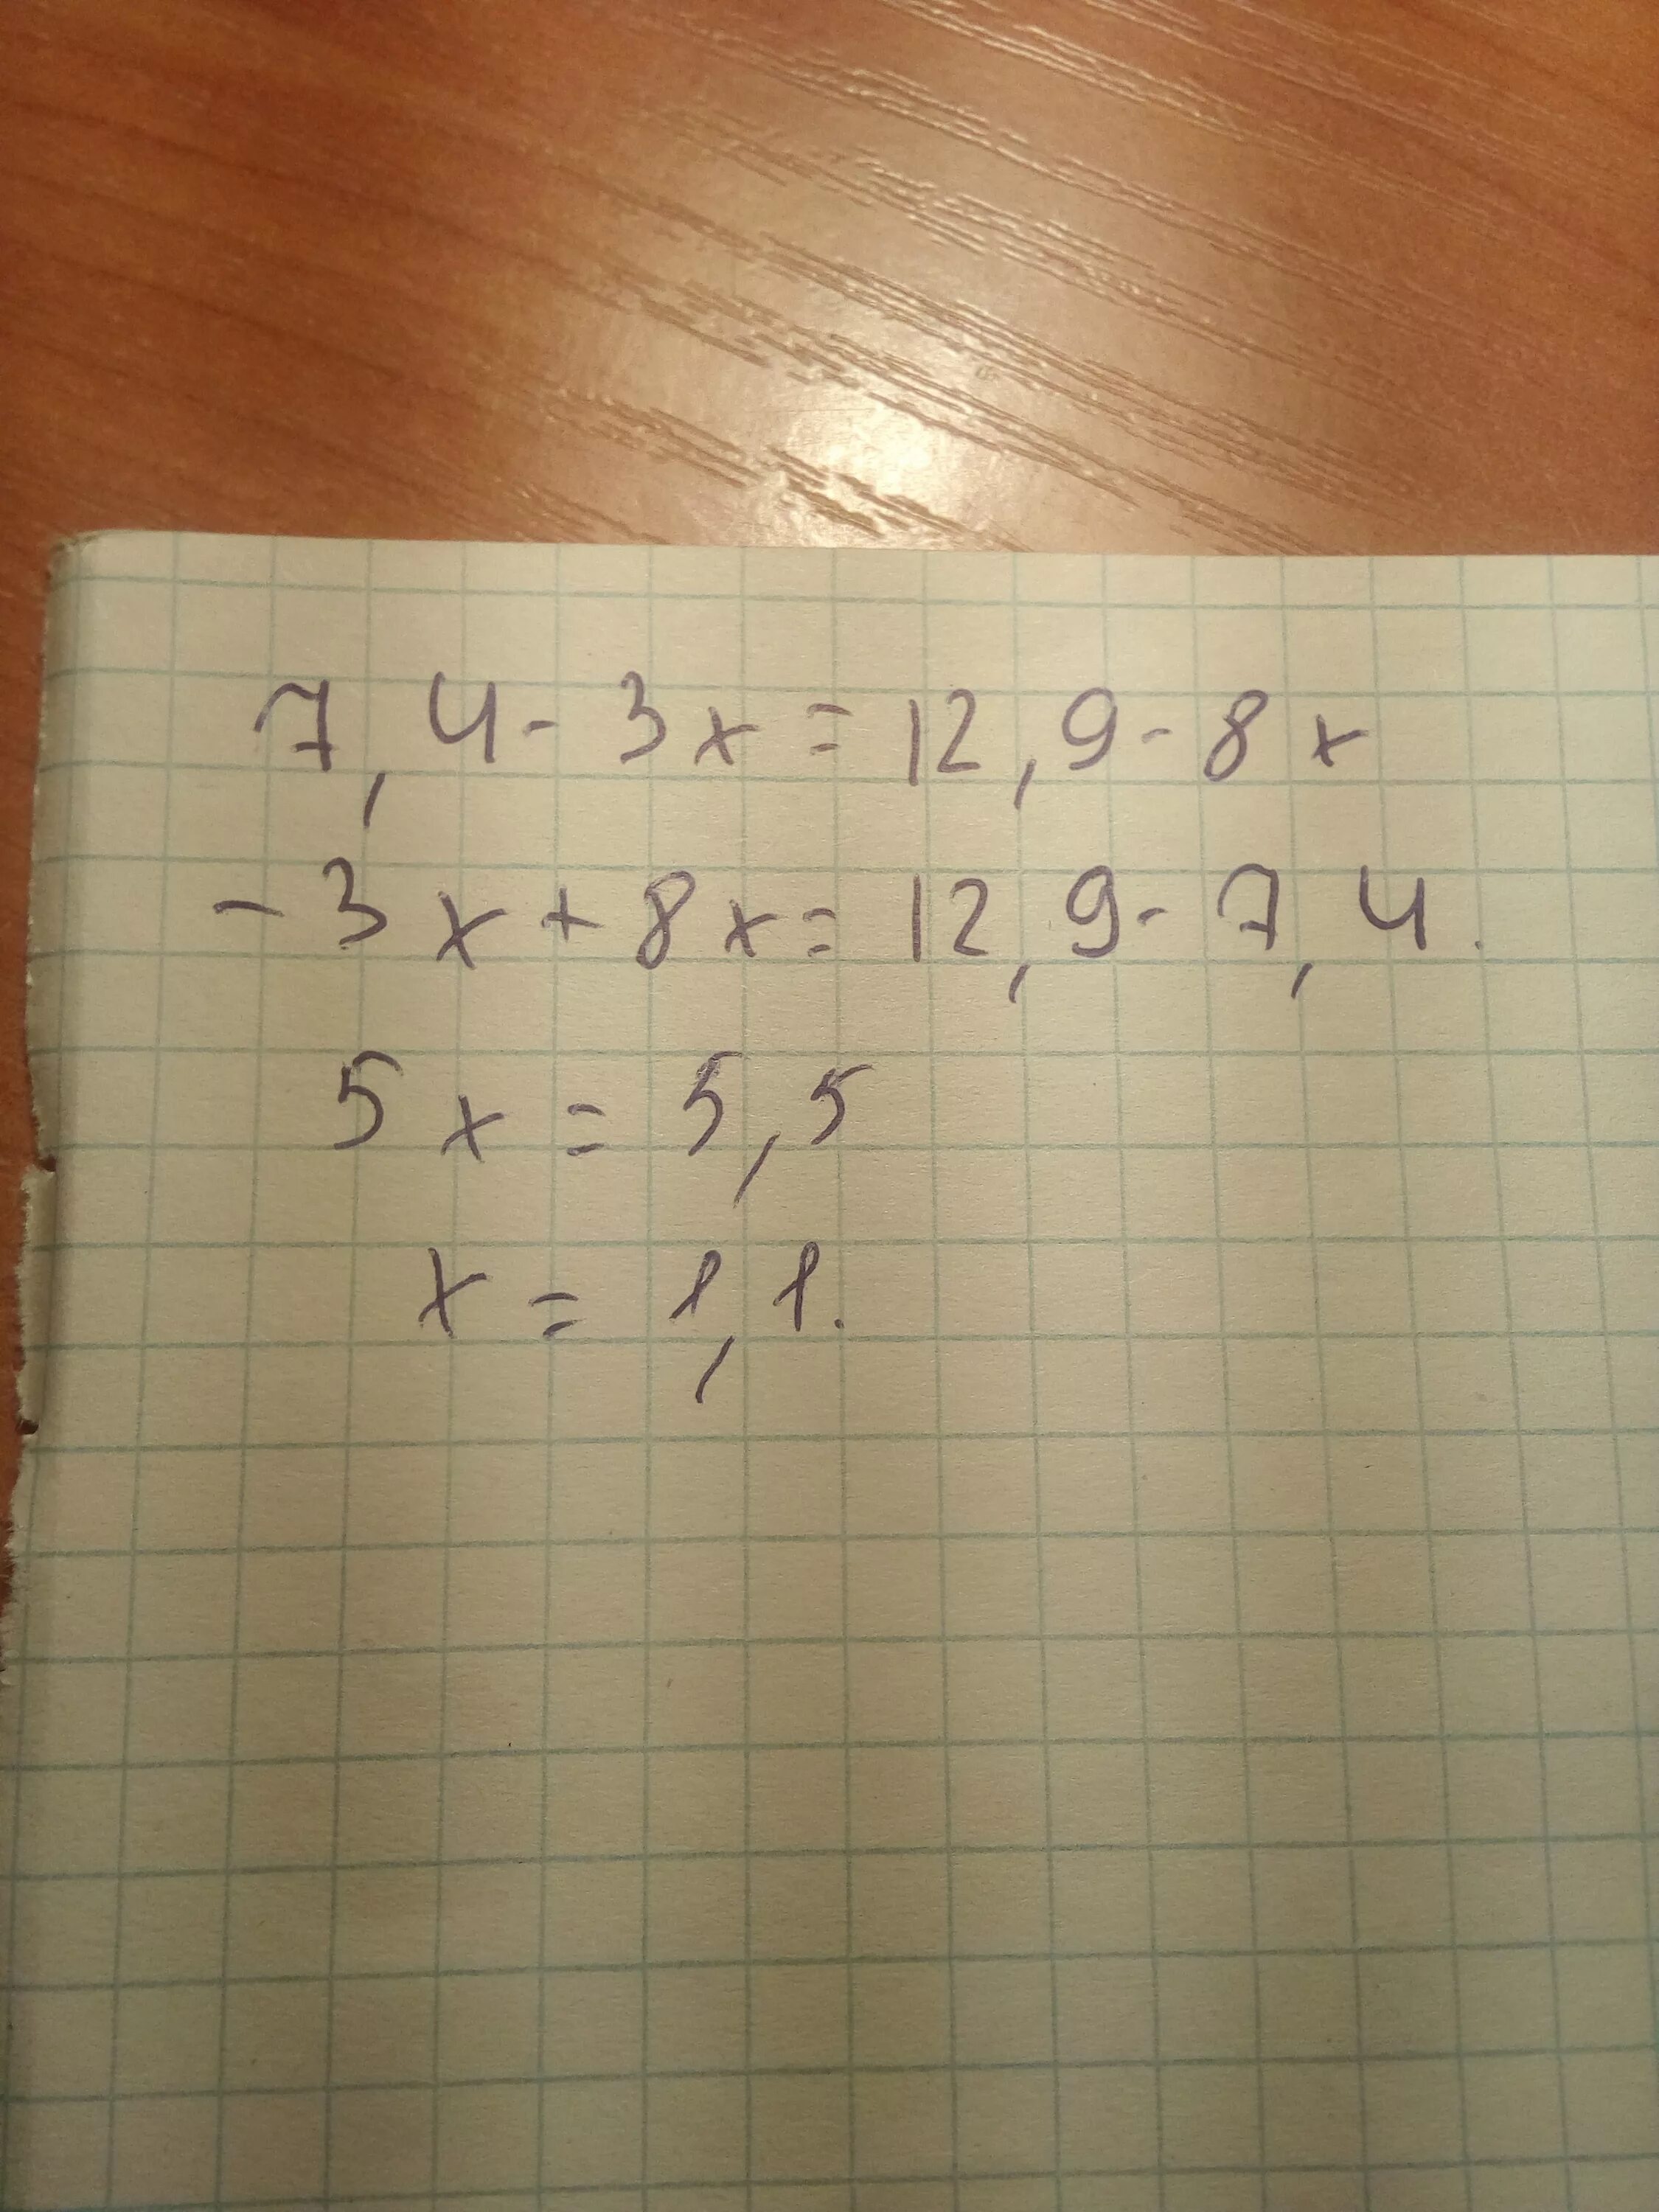 7,4-3x=12,9-8x
-3x+8x=12,9-7,4.
5x=5,5
x=1,1.